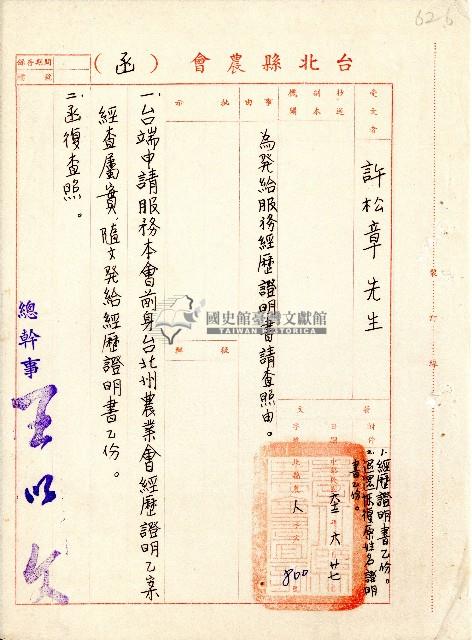 626
台北縣農會（函）
保存期間
號
受文者
許松章先生
抄送
副本
機關
事由
為發給服務經歷證明書請查照由。
批示
擬
附件
1.經歷證明書乙份。
2.退還恢復原姓名證明書乙份。
發文
日期
中華民國六
年六月廿七
字號
北縣農人字
800
一、台端申請服務本會前身台北州農業會經歷證明乙案經查屬實，隨文發給經歷證明書乙份。
二、函復查照。
總幹事
王以文
裝訂線
國史館臺灣文獻館
TAIWAN HISTORICA